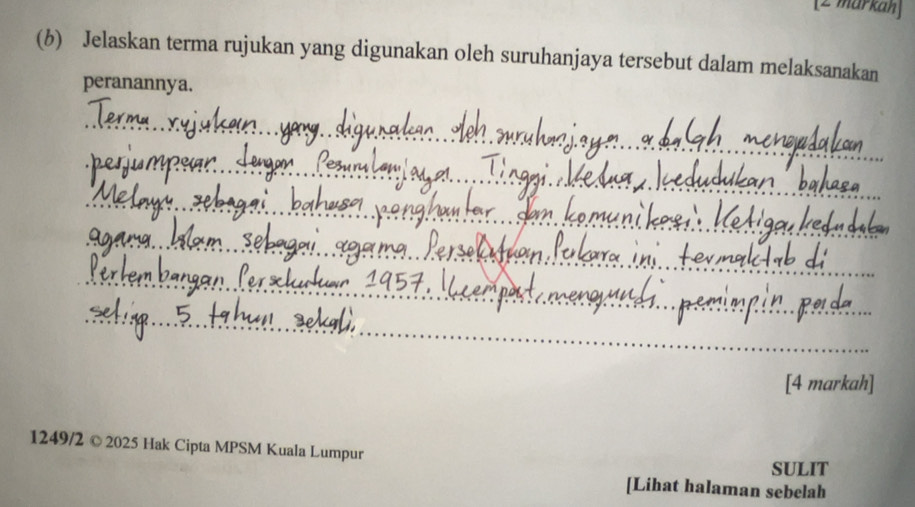 [2 markah]
(b) Jelaskan terma rujukan yang digunakan oleh suruhanjaya tersebut dalam melaksanakan
peranannya.
Terma rujukan yang digunakan oleh suruhanjaya adalah mengadakan
perjumpaan dengan Pesuruhanjaya Tinggi. Kedua, kedudukan bahasa
Melayu sebagai bahasa penghantar dan komunikasi. Ketiga, kedudukan
agama Islam sebagai agama Persekutuan. Perkara ini termaktub di
Perlembangan Persekutuan 1957. Keempat, mengundi pemimpin pada
seling 5 tahun sekali.
[4 markah]
1249/2 © 2025 Hak Cipta MPSM Kuala Lumpur
SULIT
[Lihat halaman sebelah